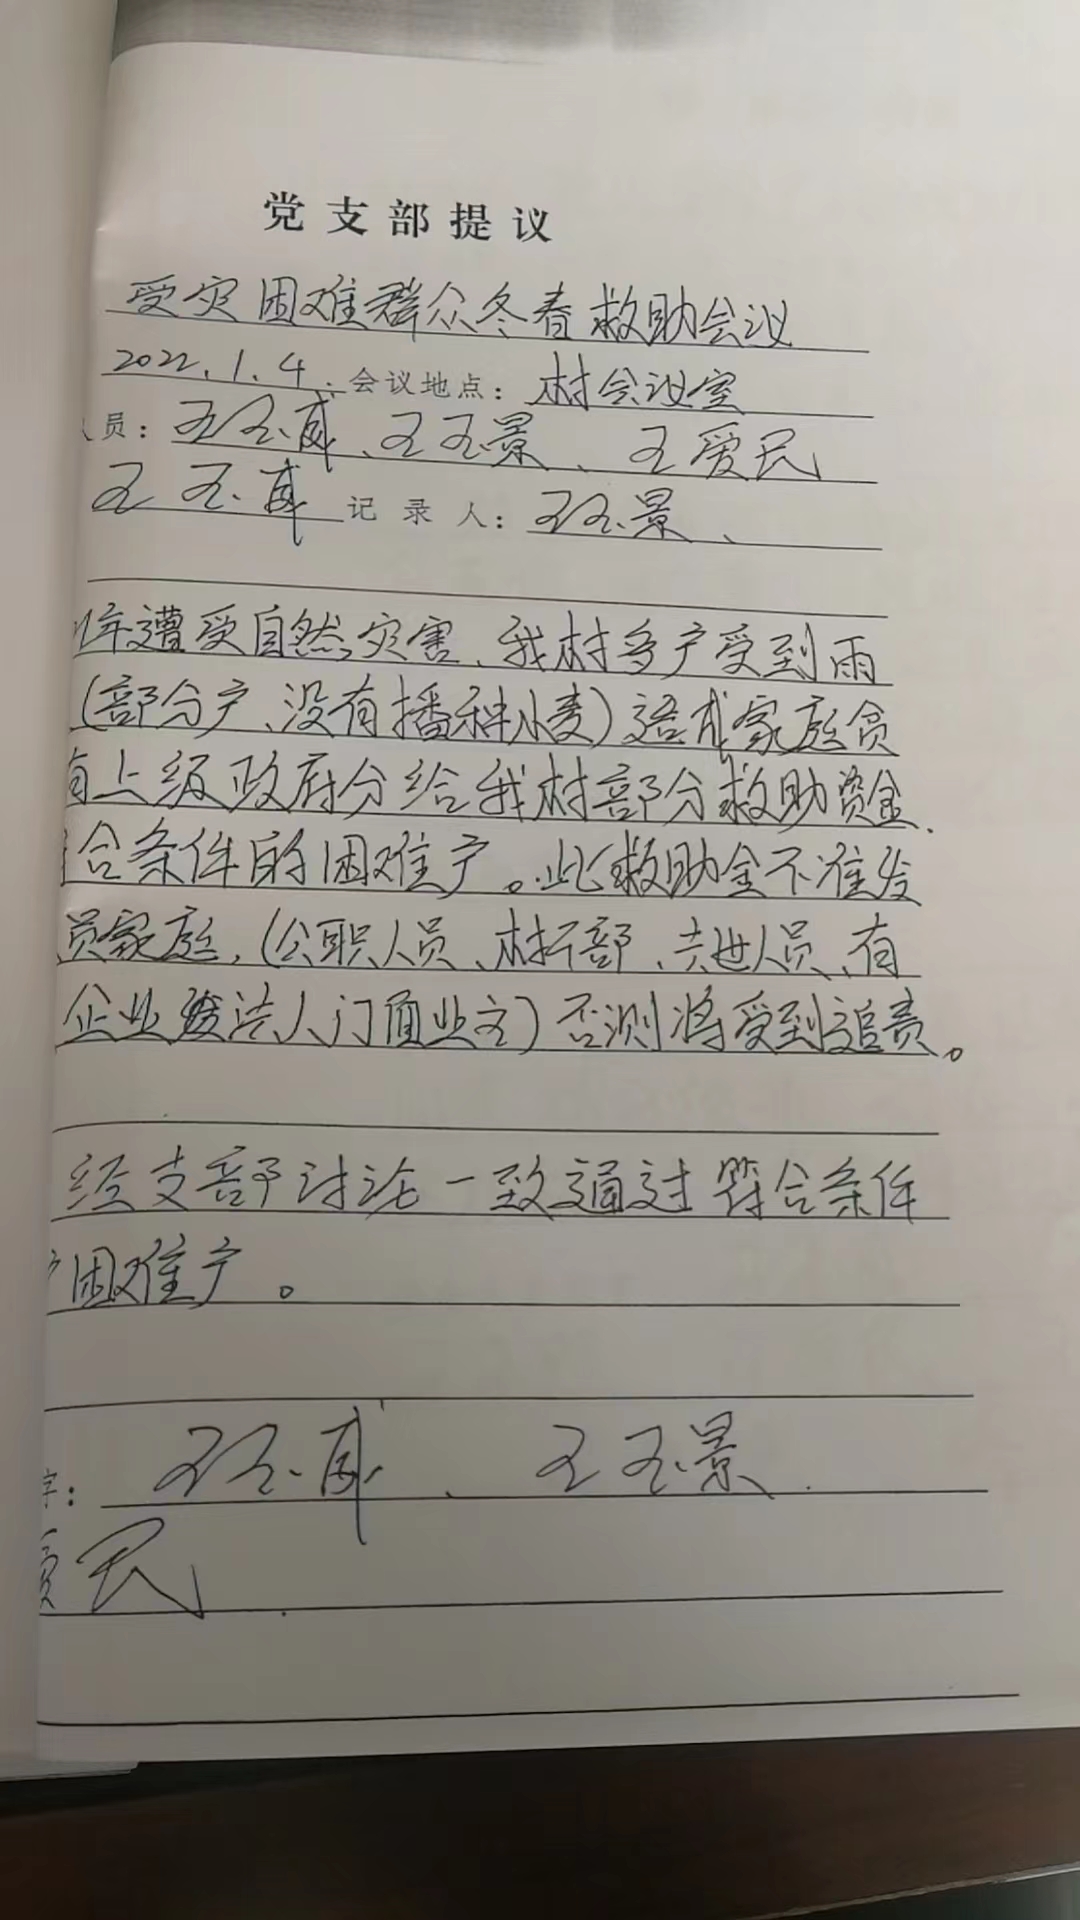 党支部提议
受灾困难群众冬春救助会议
2022.1.4. 会议地点：村会议室
人员：王玉成、王玉景、王爱民
王玉成 记录人：王玉景、
年遭受自然灾害、我村多户受到雨
(部分户、没有播种小麦)造成家庭员
有上级政府分给我村部分救助资金.
合条件的困难户。此救助金不准发
员家庭,(公职人员、村干部、去世人员、有
企业法人门面业主)否测将受到追责。
经支部讨论一致通过符合条件
困难户。
字：王玉成、王玉景.
民